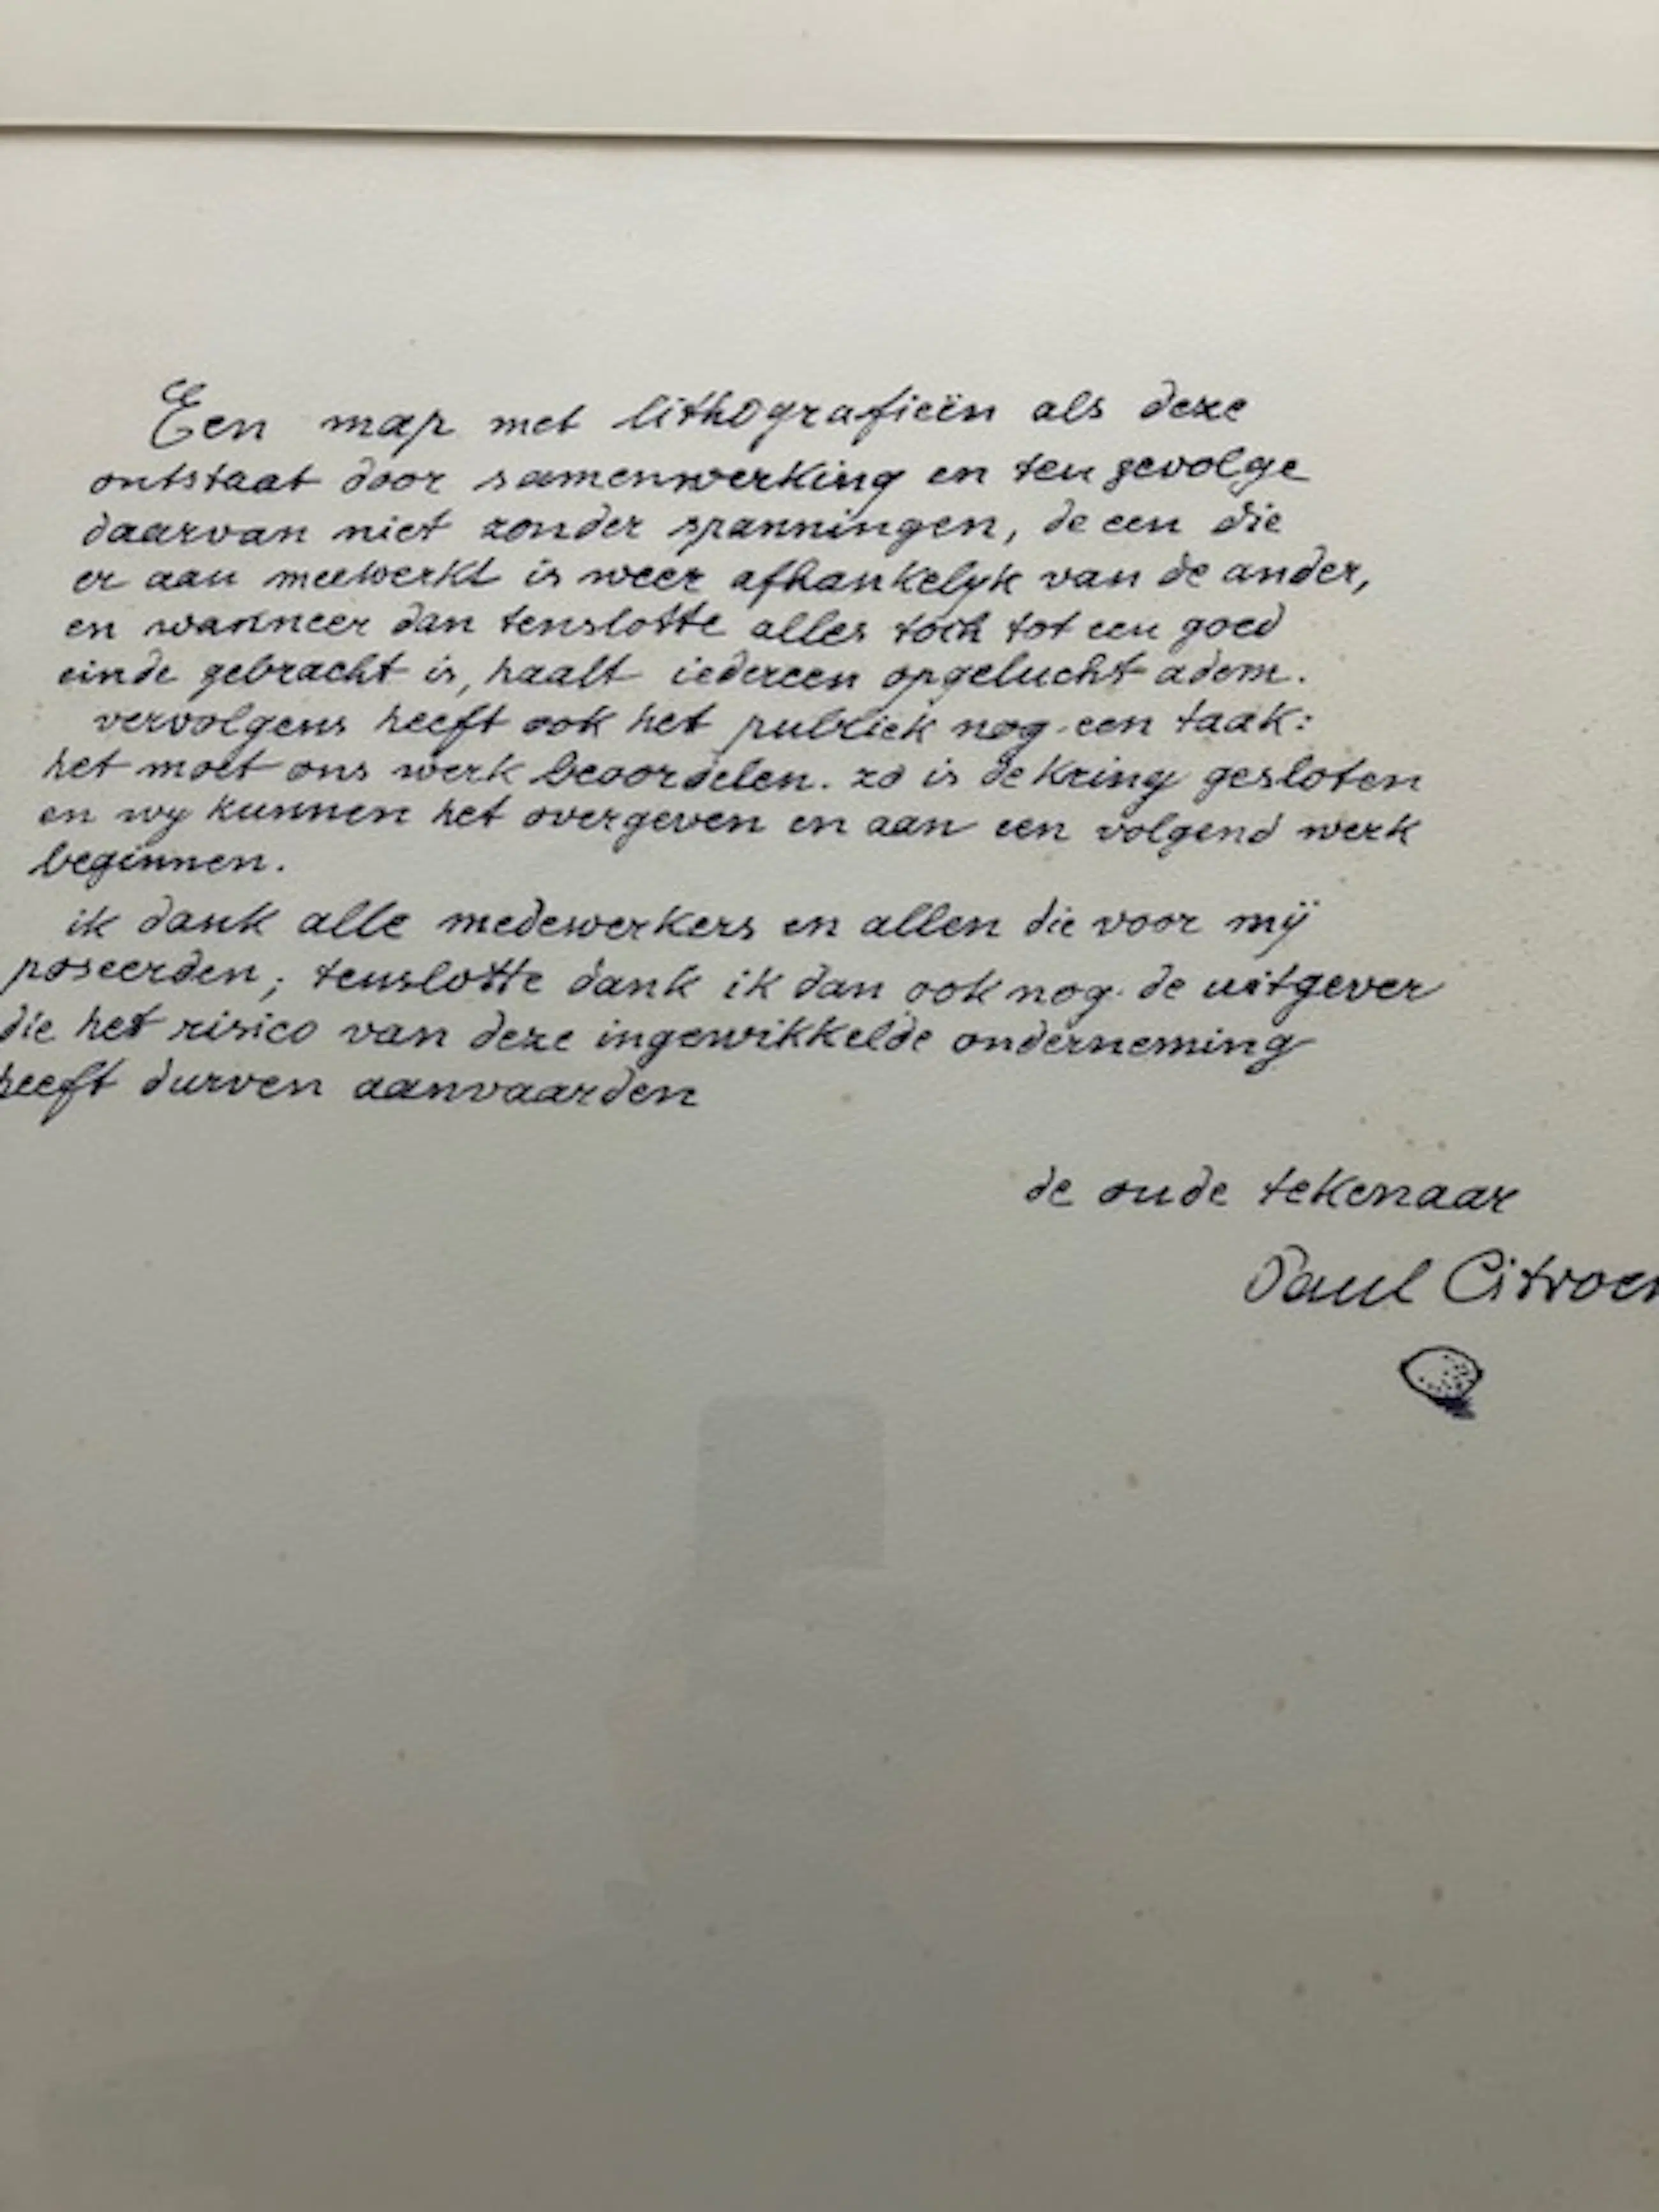 Een map met lithografieën als deze
ontstaat door samenwerking en ten gevolge
daarvan niet zonder spanningen, de een die
er aan meewerkt is weer afhankelyk van de ander,
en wanneer dan tenslotte alles toch tot een goed
einde gebracht is, haalt iedereen opgelucht adem.
vervolgens heeft ook het publiek nog een taak:
het moet ons werk beoordelen. zo is de kring gesloten
en wy kunnen het overgeven en aan een volgend werk
beginnen.
ik dank alle medewerkers en allen die voor mÿ
poseerden; tenslotte dank ik dan ook nog de uitgever
die het risico van deze ingewikkelde onderneming
heeft durven aanvaarden
de oude tekenaar
Paul Citroen